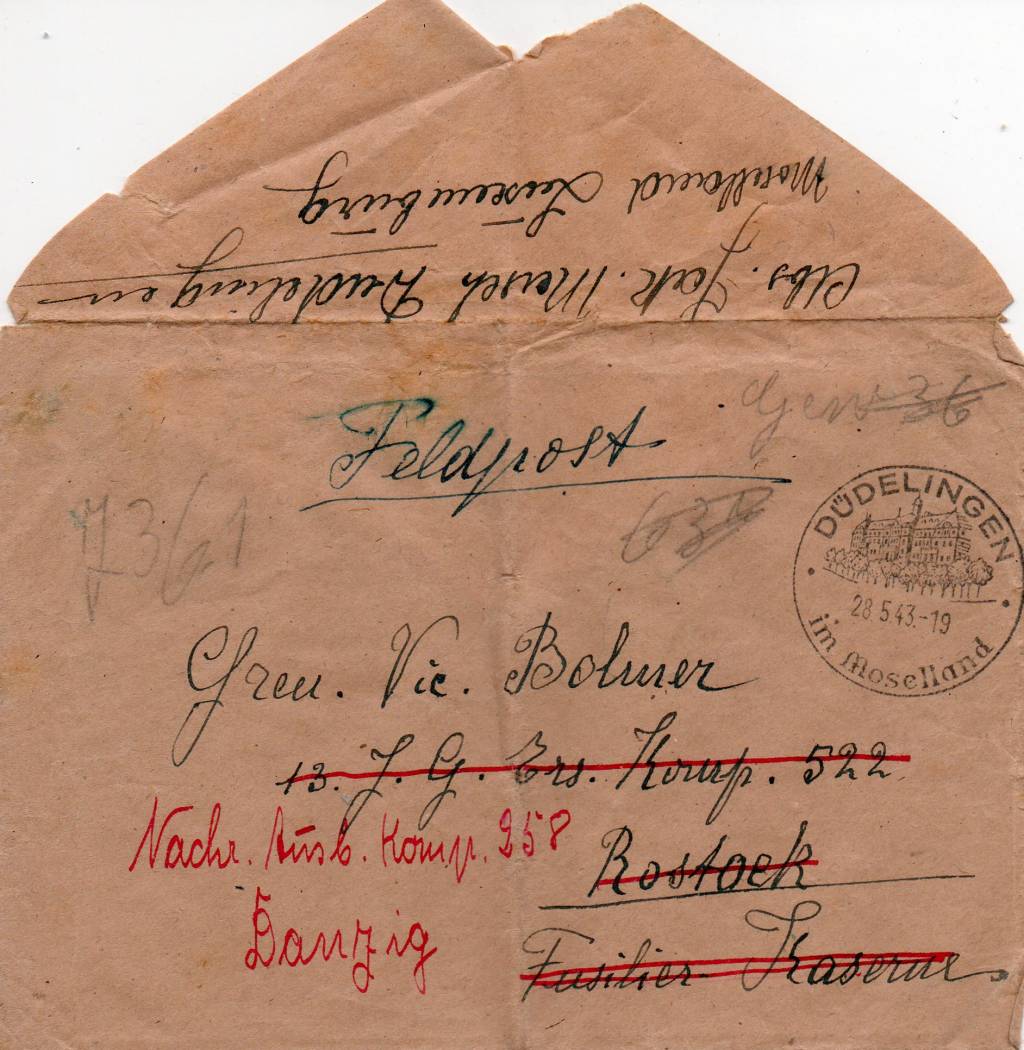 Abs. Jak. Mersch Düdelingen
Moselland Luxemburg
Feldpost
7361
DÜDELINGEN
28.5.43.-19
im Moselland
Gren. Vic. Bolmer
13. J. G. Ers. Komp. 522
Nachr. Ausb. Komp. 258
Rostock
Danzig
Fusilier Kaserne